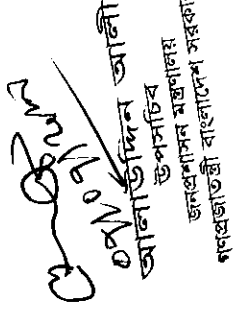 আলাউদ্দিন আলী
উপসচিব
জনপ্রশাসন মন্ত্রণালয়
গণপ্রজাতন্ত্রী বাংলাদেশ সরকা